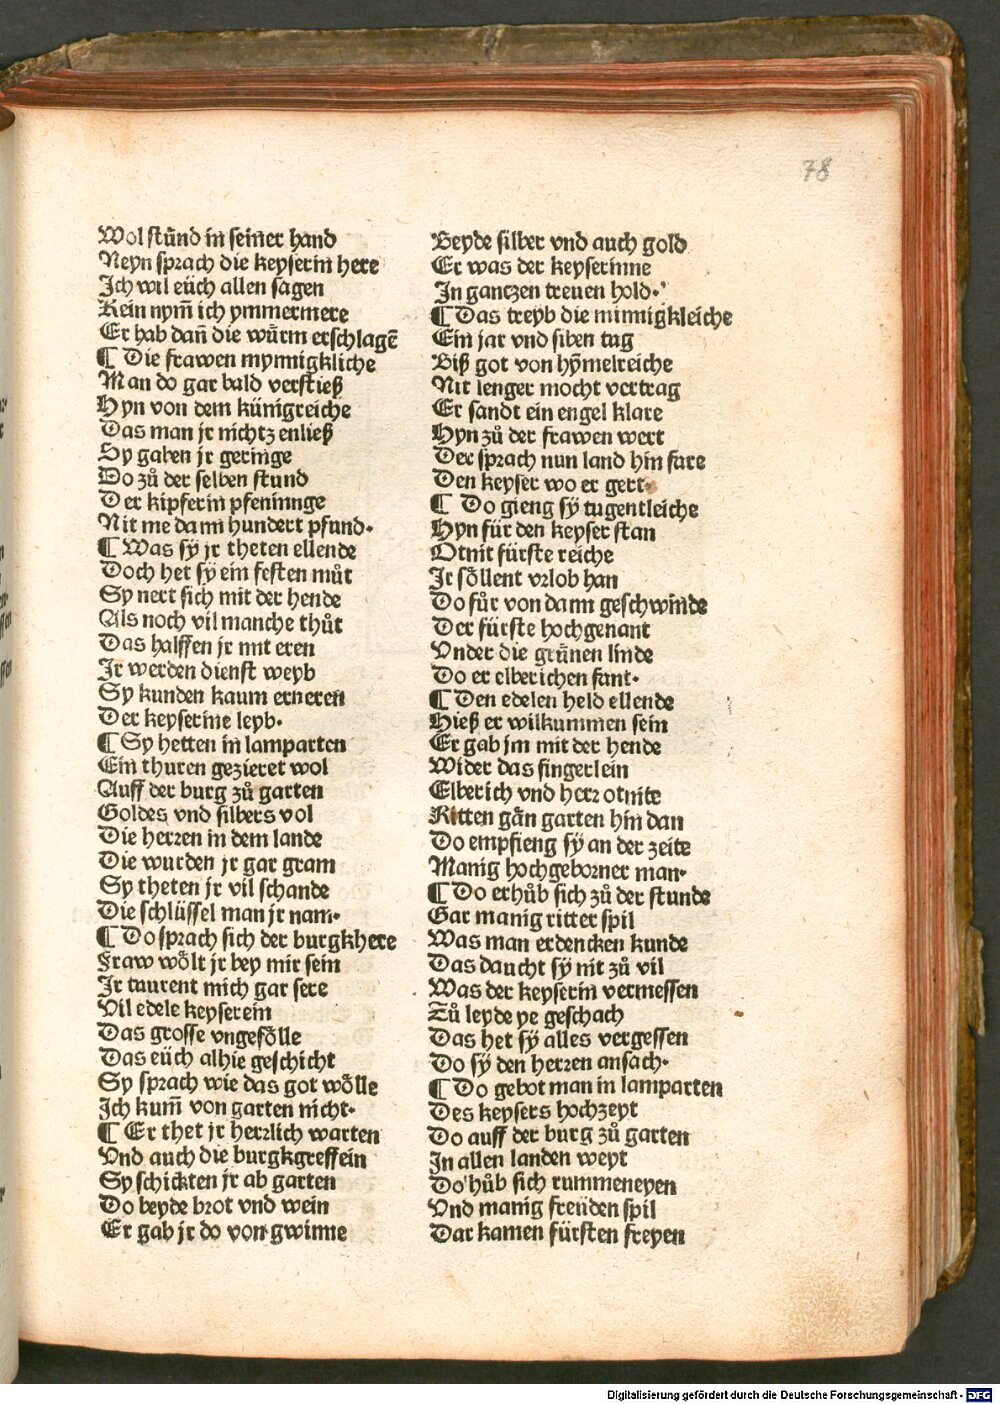 78
Wol stůnd in seiner hand
Neyn sprach die keyserin here
Ich wil eüch allen sagen
Kein nym̄ ich ymmermere
Er hab dañ die würm erschlagē
¶ Die frawen mynnigkliche
Man do gar bald verstieß
Hyn von dem künigreiche
Das man jr nichtz enließ
Sy gaben jr geringe
Do zů der selben stund
Der kipferin pfeninnge
Nit me dann hundert pfund.
¶ Was sÿ jr theten ellende
Doch het sÿ ein festen můt
Sy nert sich mit der hende
Als noch vil manche thůt
Das halffen jr mit eren
Ir werden dienst weyb
Sy kunden kaum erneren
Der keyserine leyb.
¶ Sy hetten in lamparten
Ein thuren gezieret wol
Auff der burg zů garten
Goldes vnd silbers vol
Die herren in dem lande
Die wurden jr gar gram
Sy theten jr vil schande
Die schlüssel man jr nam.
¶ Do sprach sich der burgkhere
Fraw wölt jr bey mir sein
Ir taurent mich gar sere
Vil edele keyserein
Das grosse vngefölle
Das eüch alhie geschicht
Sy sprach wie das got wölle
Ich kum̄ von garten nicht.
¶ Er thet jr herzlich warten
Vnd auch die burgkgreffein
Sy schickten jr ab garten
Do beyde brot vnd wein
Er gab jr do von gwinne
Beyde silber vnd auch gold
Er was der keyserinne
In gantzen treuen hold.
¶ Das treyb die minnigkleiche
Ein jar vnd siben tag
Biß got von hÿmelreiche
Nit lenger mocht vertrag
Er sandt ein engel klare
Hyn zů der frawen wert
Der sprach nun land hin fare
Den keyser wo er gert.
¶ Do gieng sÿ tugentleiche
Hyn für den keyser stan
Otnit fürste reiche
Ir söllent vrlob han
Do fůr von dann geschwinde
Der fürste hochgenant
Vnder die grünen linde
Do er elberichen fant.
¶ Den edelen held ellende
Hieß er wilkummen sein
Er gab jm mit der hende
Wider das fingerlein
Elberich vnd herr otnite
Ritten gān garten hin dan
Do empfieng sÿ an der zeite
Manig hochgeborner man.
¶ Do erhůb sich zů der stunde
Gar manig ritter spil
Was man erdencken kunde
Das daucht sÿ nit zů vil
Was der keyserin vermessen
Zů leyde ye geschach
Das het sÿ alles vergessen
Do sÿ den herren ansach.
¶ Do gebot man in lamparten
Des keysers hochzeyt
Do auff der burg zů garten
In allen landen weyt
Do hůb sich rummeneyen
Vnd manig freüden spil
Dar kamen fürsten freyen
Digitalisierung gefördert durch die Deutsche Forschungsgemeinschaft - DFG